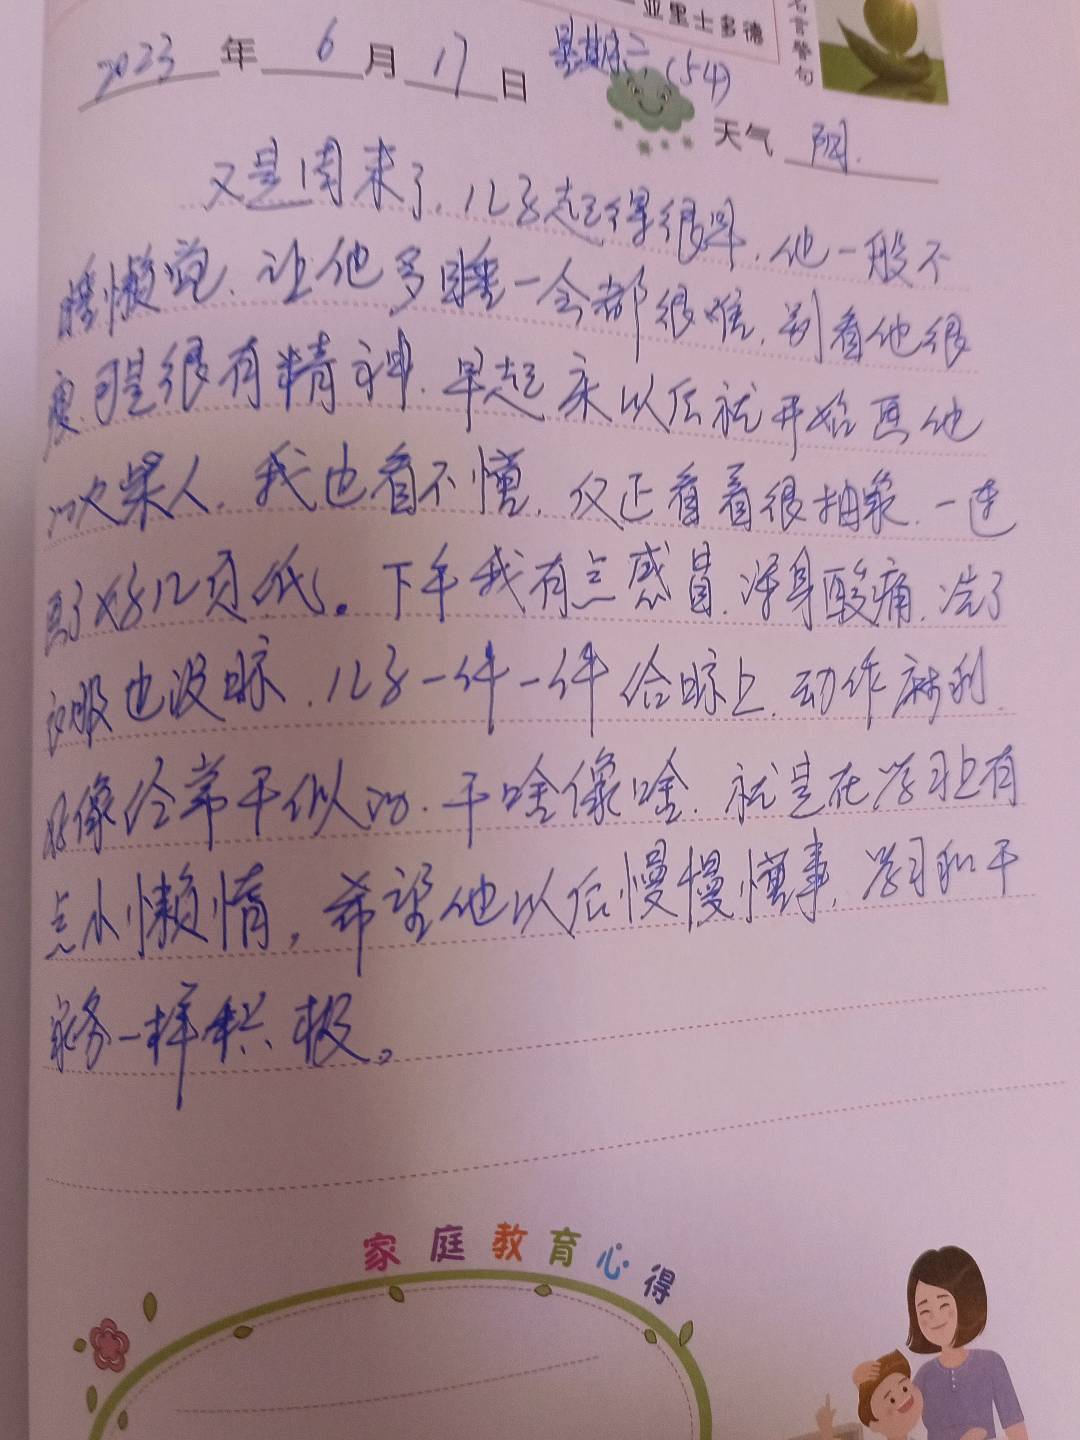 亚里士多德
名言警句
2023年6月17日 星期六(54)
天气 阴.
又是周末了,儿子起得很早,他一般不
睡懒觉,让他多睡一会都很难,别看他很
瘦,可是很有精神.早起床以后就开始画他
的火柴人,我也看不懂,仅正看着很抽象,一连
画了好几页纸。下午我有点感冒,浑身酸痛,洗了
衣服也没晾,儿子一件一件给晾上,动作麻利,
好像经常干似的.干啥像啥,就是在学习上有
点小懒惰,希望他以后慢慢懂事,学习和干
家务一样积极。
家庭教育心得